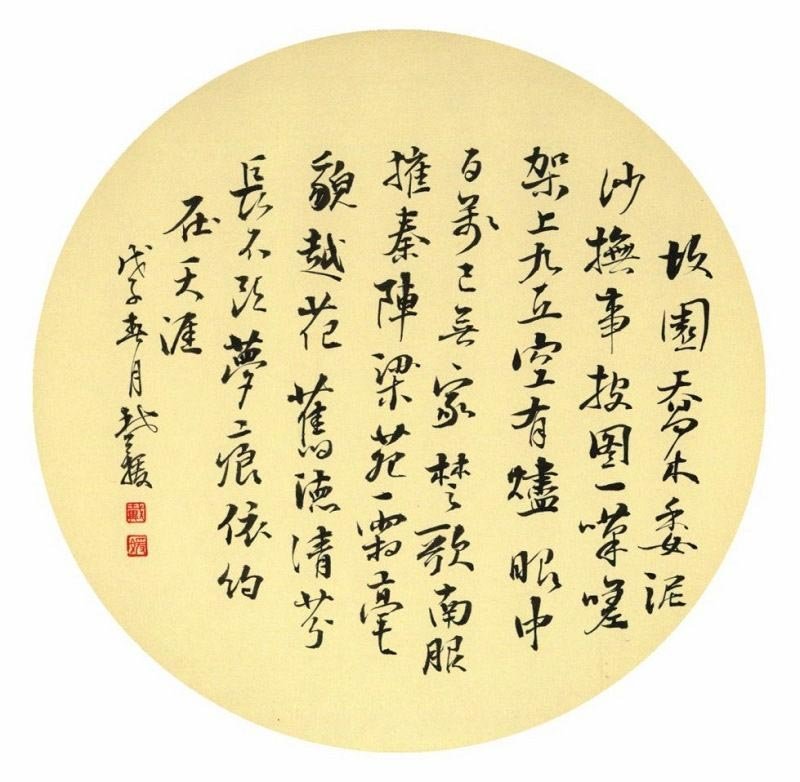 故園喬木委泥
沙撫事披圖一嘆嗟
架上九丘空有燼眼中
百萬已無家楚歌南服
擁秦陣梁苑霜毫
貌越花舊德清芬
長不改夢痕依約
在天涯
戊子春月